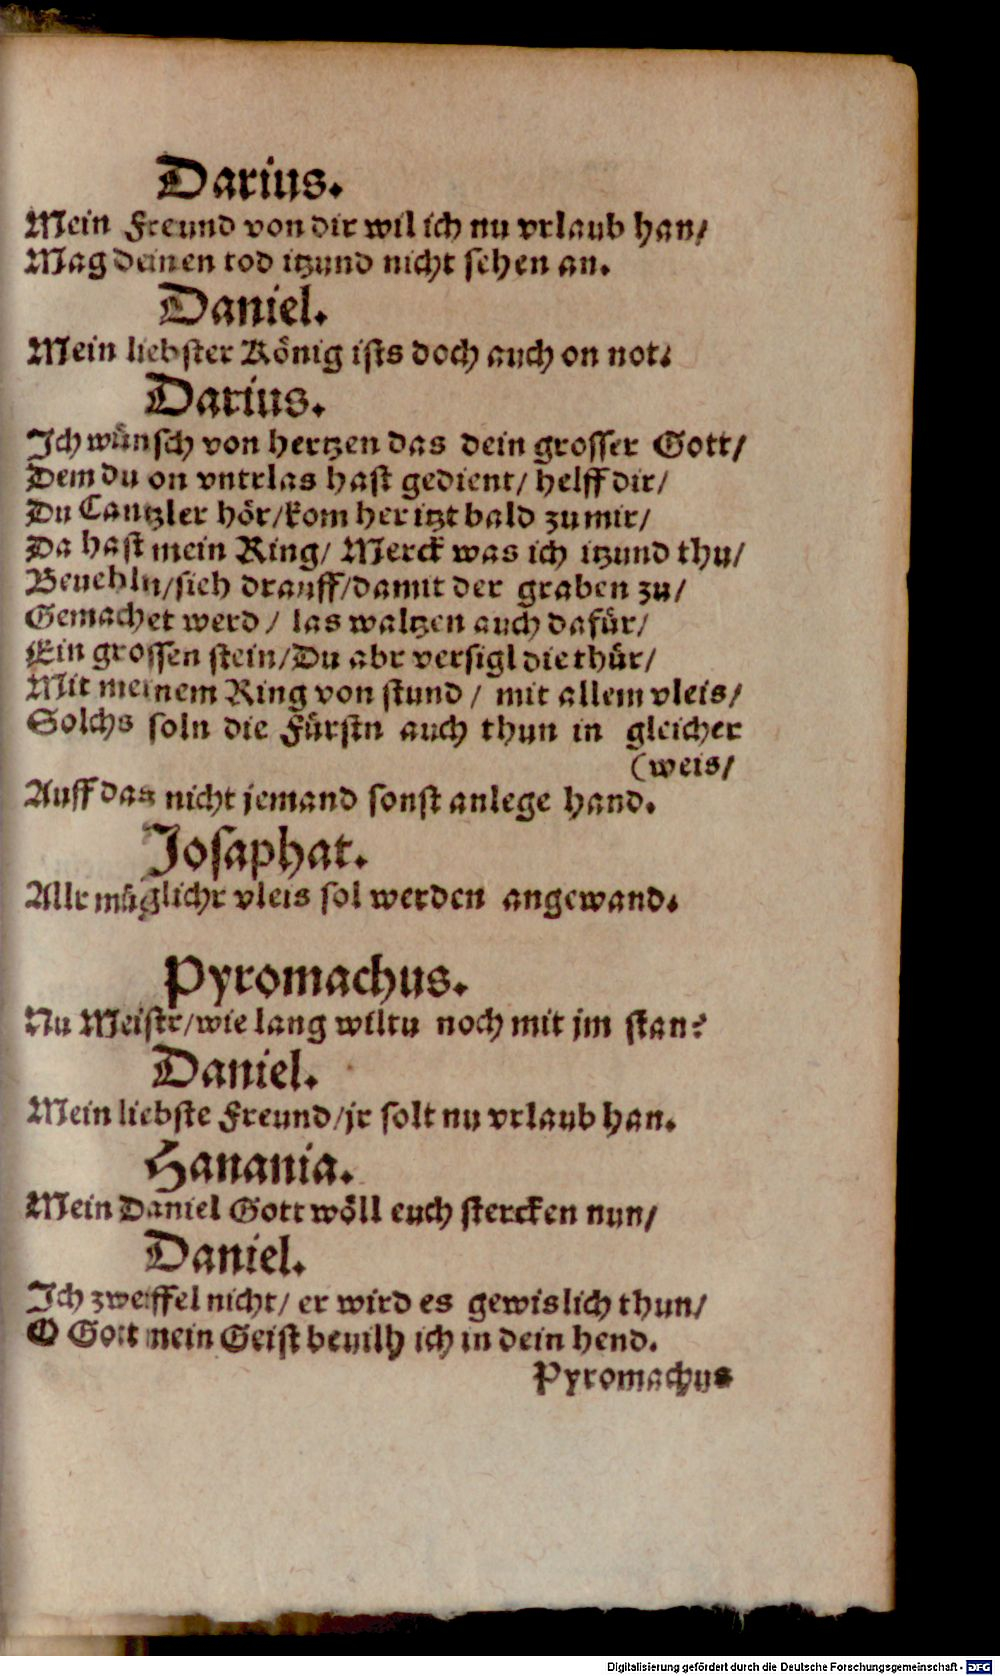 Darius.
Mein Freund von dir wil ich nu vrlaub han/
Mag deinen tod itzund nicht sehen an.
Daniel.
Mein liebster König ists doch auch on not.
Darius.
Ich wünsch von hertzen das dein grosser Gott/
Dem du on vntrlas hast gedient/ helff dir/
Du Cantzler hör/kom her itzt bald zu mir/
Da hast mein Ring/ Merck was ich itzund thu/
Beuehln/sieh drauff/damit der graben zu/
Gemachet werd/ las waltzen auch dafür/
Ein grossen stein/Du abr versigl die thür/
Mit meinem Ring von stund/ mit allem vleis/
Solchs soln die Fürstn auch thun in gleicher
(weis/
Auff das nicht jemand sonst anlege hand.
Josaphat.
Allr müglichr vleis sol werden angewand.
Pyromachus.
Nu Meistr/wie lang wiltu noch mit jm stan?
Daniel.
Mein liebste Freund/jr solt nu vrlaub han.
Hanania.
Mein Daniel Gott wöll euch stercken nun/
Daniel.
Ich zweiffel nicht/ er wird es gewislich thun/
O Gott mein Geist beuilh ich in dein hend.
Pyromachus
Digitalisierung gefördert durch die Deutsche Forschungsgemeinschaft - DFG